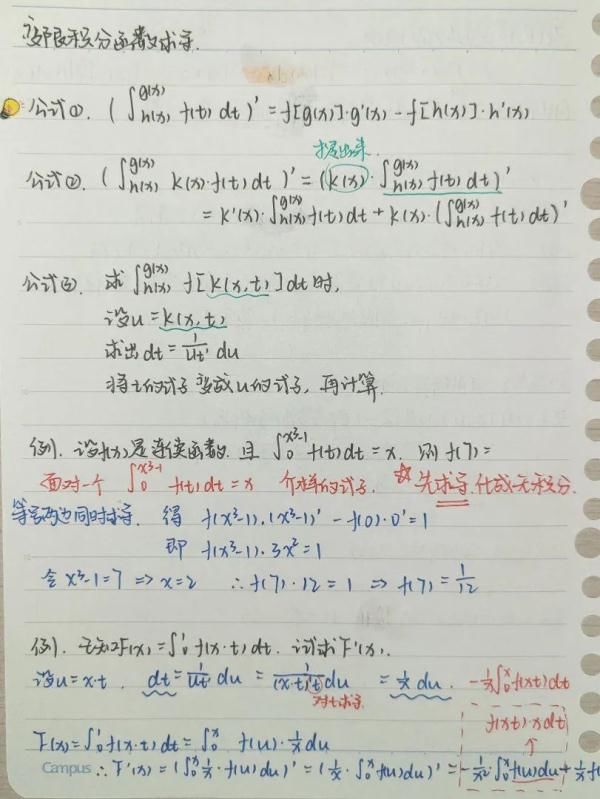 变限积分函数求导.
公式①. (∫_{h(x)}^{g(x)} f(t) dt)' = f[g(x)]·g'(x) - f[h(x)]·h'(x)
提出来
公式②. (∫_{h(x)}^{g(x)} k(x)·f(t) dt)' = (k(x)·∫_{h(x)}^{g(x)} f(t) dt)'
= k'(x)·∫_{h(x)}^{g(x)} f(t) dt + k(x)·(∫_{h(x)}^{g(x)} f(t) dt)'
公式③. 求 ∫_{h(x)}^{g(x)} f[k(x,t)] dt 时,
设 u = k(x,t)
求出 dt = 1/ut' du
将 t 的式子变成 u 的式子, 再计算.
例1. 设f(x)是连续函数. 且 ∫_0^{x³-1} f(t) dt = x. 则 f(7) =
面对一个 ∫_0^{x³-1} f(t) dt = x 个样的式子. ☆先求导.化成无积分.
等号两边同时求导. 得 f(x³-1)·(x³-1)' - f(0)·0' = 1
即 f(x³-1)·3x² = 1
令 x³-1 = 7 => x = 2 ∴ f(7)·12 = 1 => f(7) = 1/12
例. 已知F(x) = ∫_0^1 f(x·t) dt. 试求F'(x).
设u = x·t. dt = 1/ut' du = 1/(x·t)'t du = 1/x du. -1/x ∫_0^x f(xt) dt
对t求导 f(xt)·xdt
↑
F(x) = ∫_0^1 f(x·t) dt = ∫_0^x f(u)·1/x du
Campus ∴ F'(x) = (∫_0^x 1/x·f(u) du)' = (1/x·∫_0^x f(u) du)' = -1/x² ∫_0^x f(u) du + 1/x f(